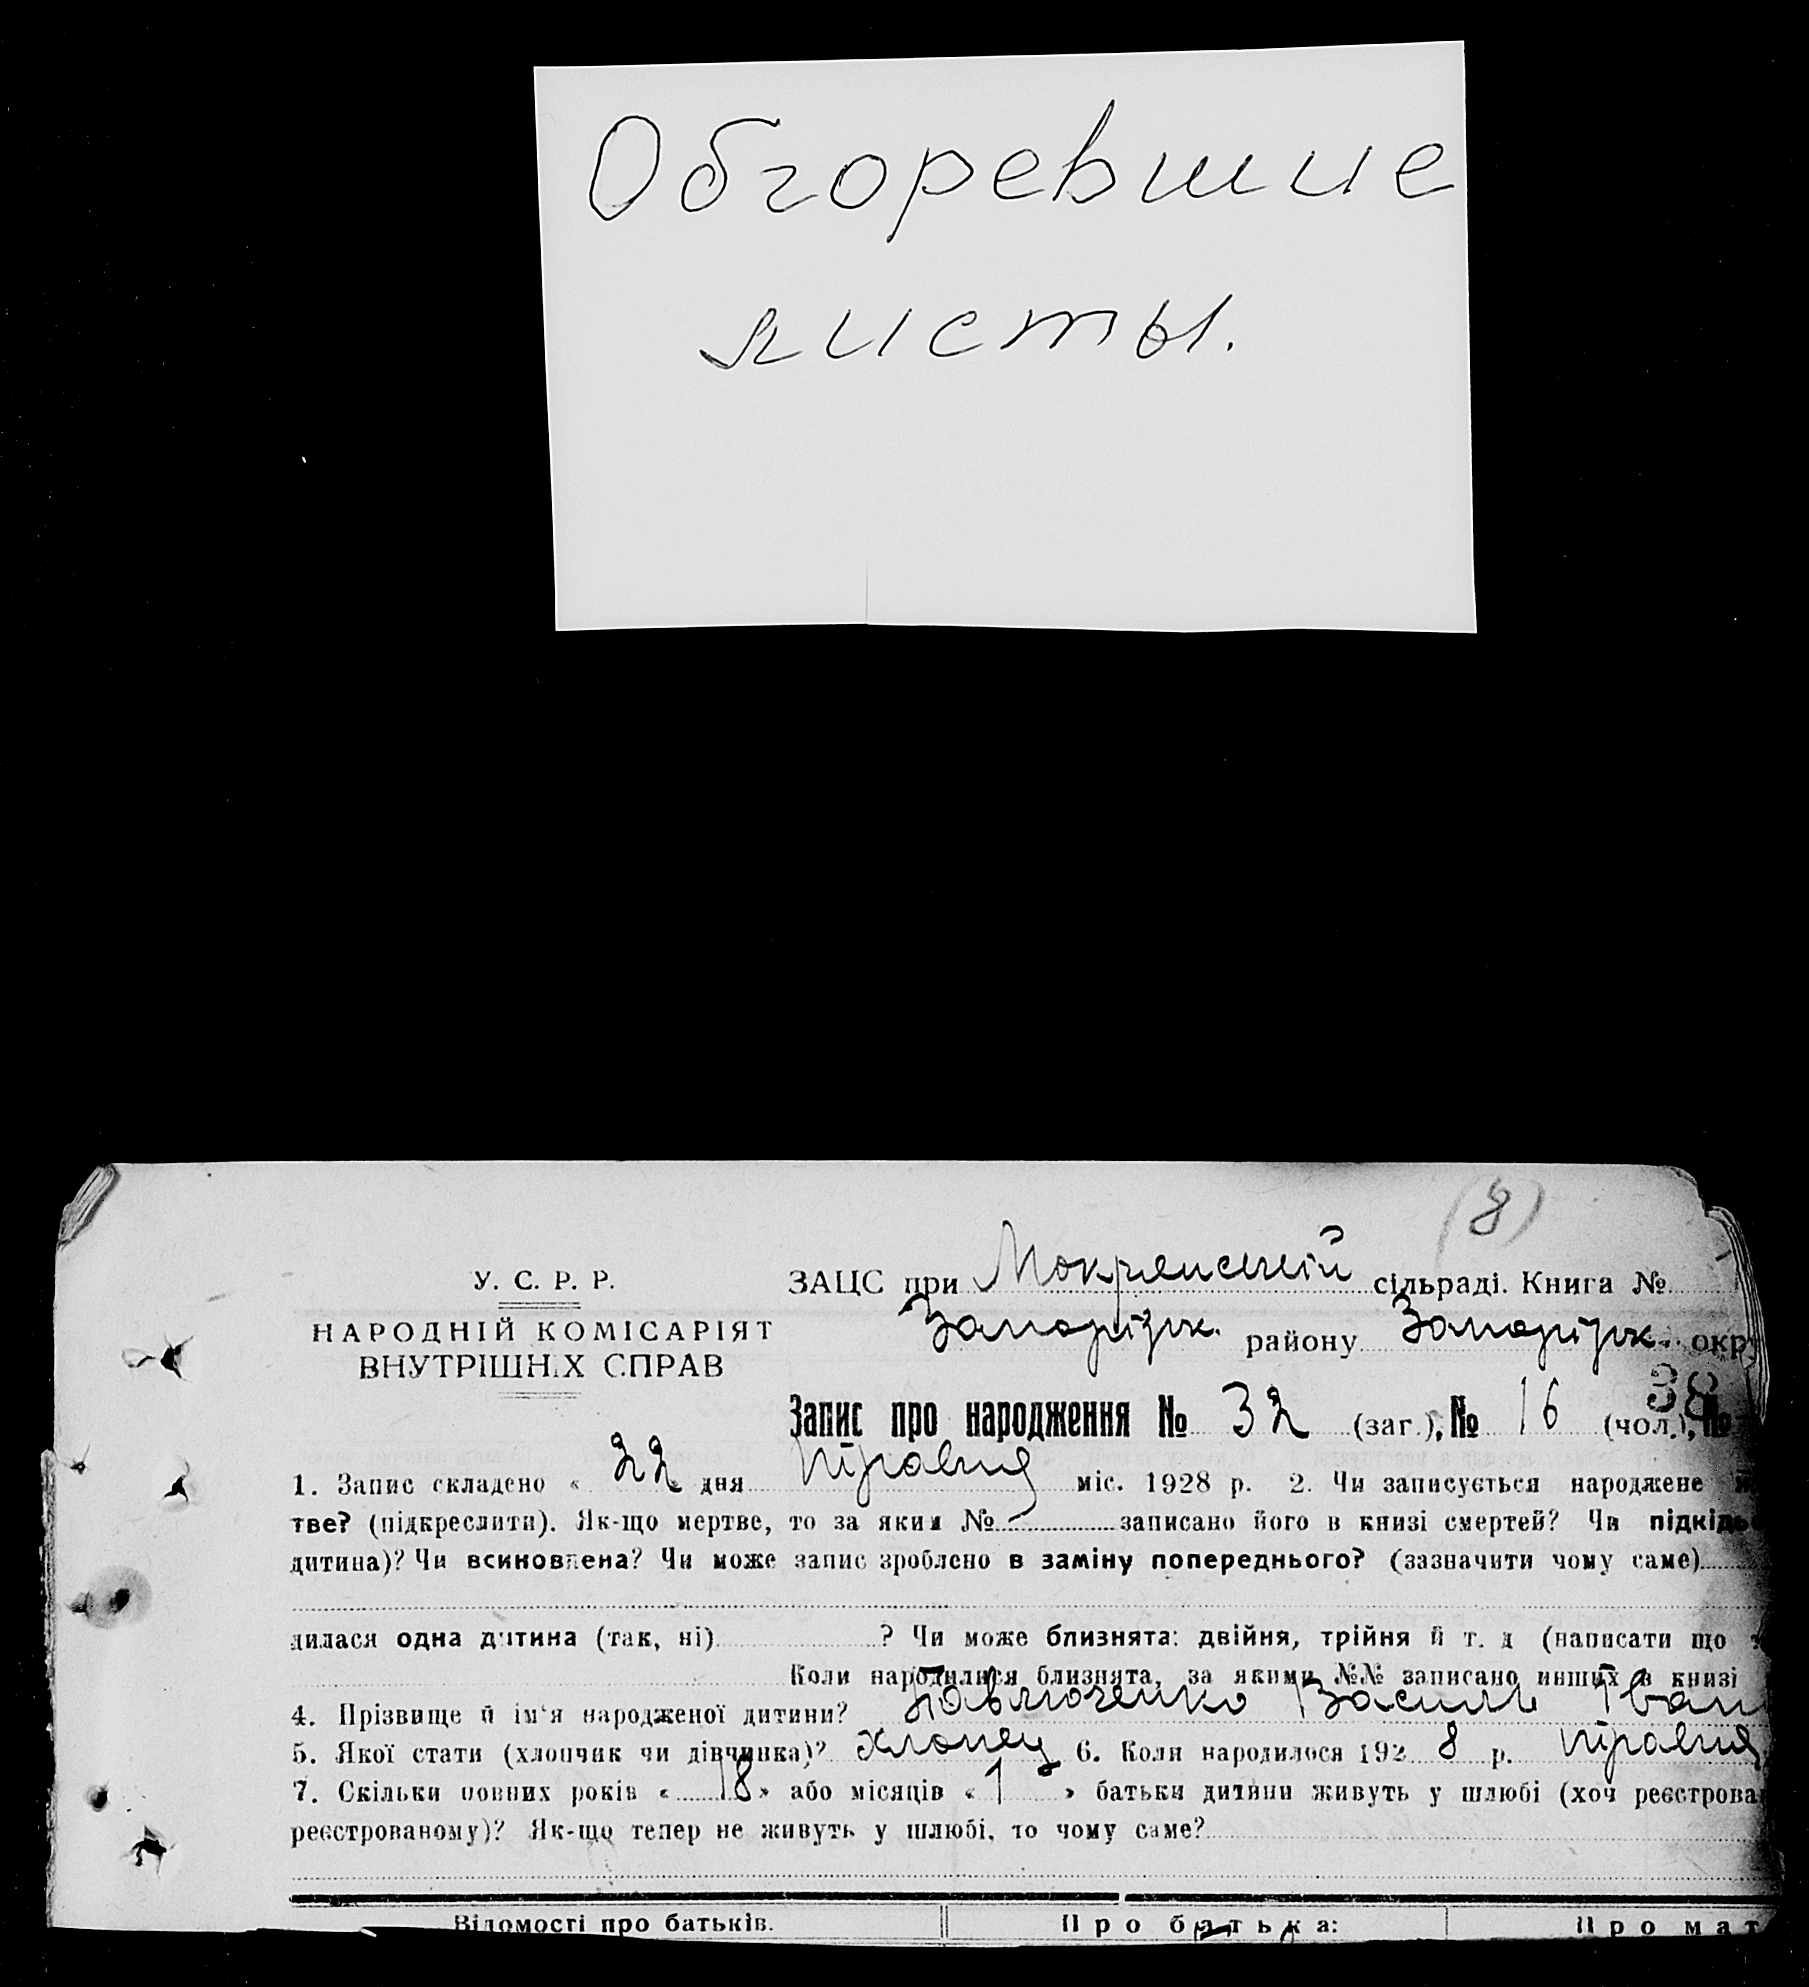 Обгоревшие
листы.
(8)
У. С. Р. Р.
НАРОДНІЙ КОМІСАРІЯТ
ВНУТРІШНІХ СПРАВ
ЗАЦС при Мокрянській сільраді. Книга №
Запорізьк. району Запорізьк. окр
38
Запис про народження № 32 (заг.), № 16 (чол.), №
1. Запис складено « 22 дня травня міс. 1928 р. 2. Чи записується народжене
тве? (підкреслити). Як-що мертве, то за яким № записано його в книзі смертей? Чи підкідь
дитина)? Чи всиновлена? Чи може запис зроблено в заміну попереднього? (зазначити чому саме)
дилася одна дитина (так, ні) ? Чи може близнята: двійня, трійня й т. д (написати що
Коли народилися близнята, за якими №№ записано инших в книзі
4. Прізвище й ім'я народженої дитини? Павлюченко Василь Іван
5. Якої стати (хлопчик чи дівчинка)? хлопец 6. Коли народилося 192 8 р. травня
7. Скільки повних років « 18 » або місяців « 1 » батьки дитини живуть у шлюбі (хоч реєстрова
реєстрованому)? Як-що тепер не живуть у шлюбі, то чому саме?
Відомості про батьків. Про батька: Про мат